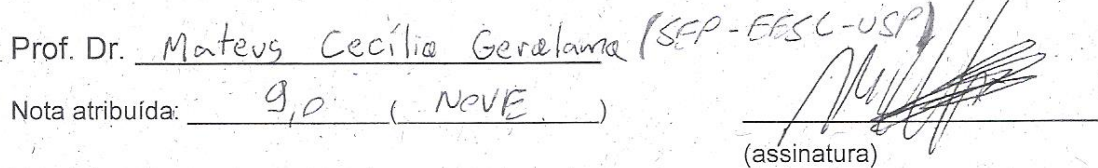 Prof. Dr. Mateus Cecílio Gerolamo (SEP-EESC-USP)
Nota atribuída: 9,0 ( NOVE )
(assinatura)